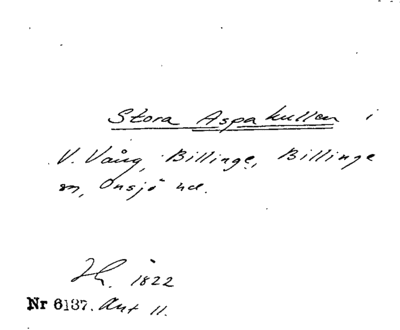 Stora Aspakullen i
V. Vång, Billinge, Billinge
sn, Onsjö hd.
1822
Nr 6137. Akt 11.